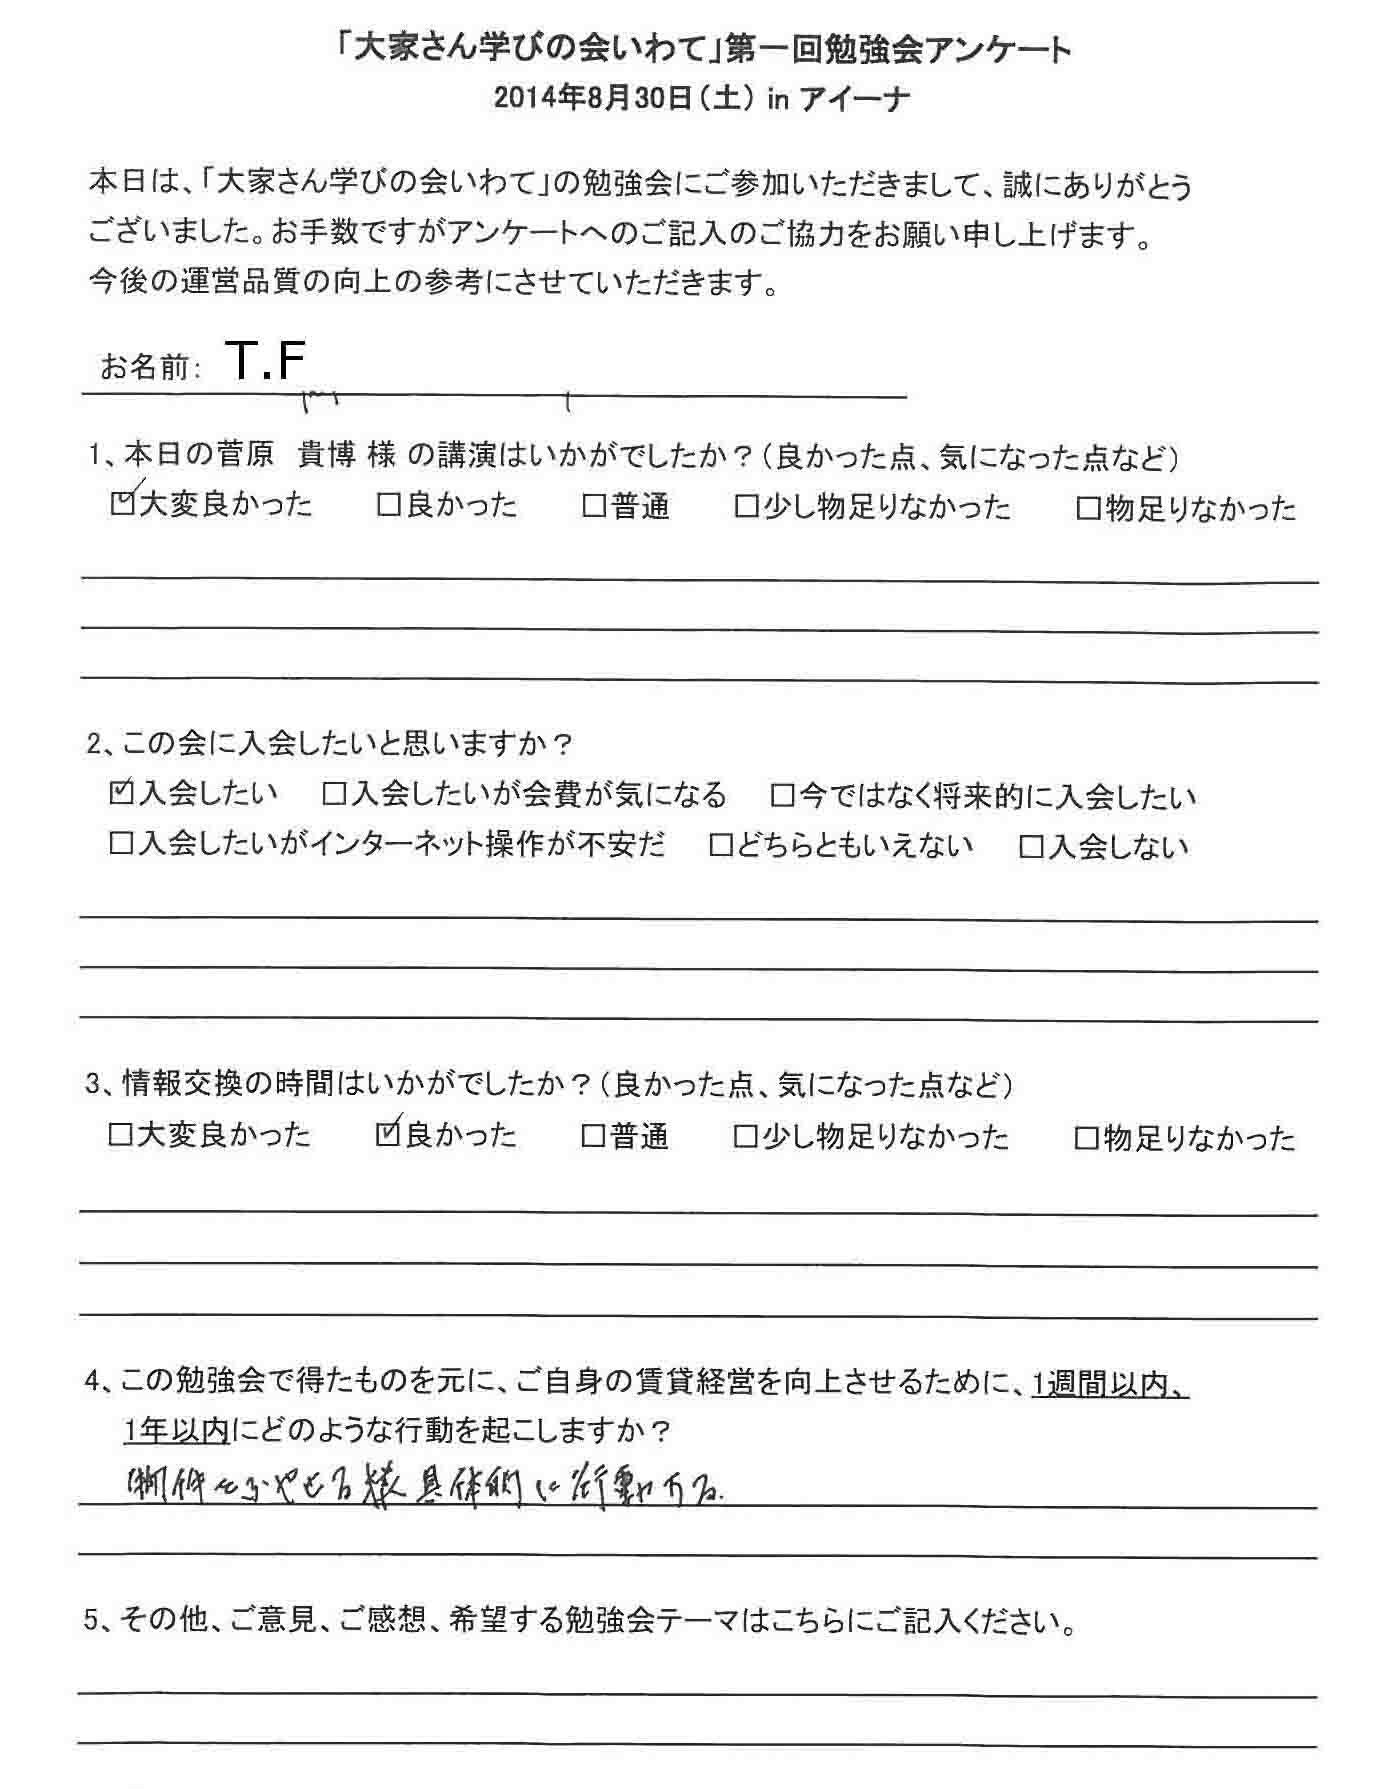 「大家さん学びの会いわて」第一回勉強会アンケート
2014年8月30日(土) in アイーナ
本日は、「大家さん学びの会いわて」の勉強会にご参加いただきまして、誠にありがとう
ございました。お手数ですがアンケートへのご記入のご協力をお願い申し上げます。
今後の運営品質の向上の参考にさせていただきます。
お名前: T.F
1、本日の菅原 貴博 様 の講演はいかがでしたか?(良かった点、気になった点など)
☑大変良かった □良かった □普通 □少し物足りなかった □物足りなかった
2、この会に入会したいと思いますか?
☑入会したい □入会したいが会費が気になる □今ではなく将来的に入会したい
□入会したいがインターネット操作が不安だ □どちらともいえない □入会しない
3、情報交換の時間はいかがでしたか?(良かった点、気になった点など)
□大変良かった ☑良かった □普通 □少し物足りなかった □物足りなかった
4、この勉強会で得たものを元に、ご自身の賃貸経営を向上させるために、1週間以内、
1年以内にどのような行動を起こしますか?
物件をふやせる様具体的に行動する.
5、その他、ご意見、ご感想、希望する勉強会テーマはこちらにご記入ください。